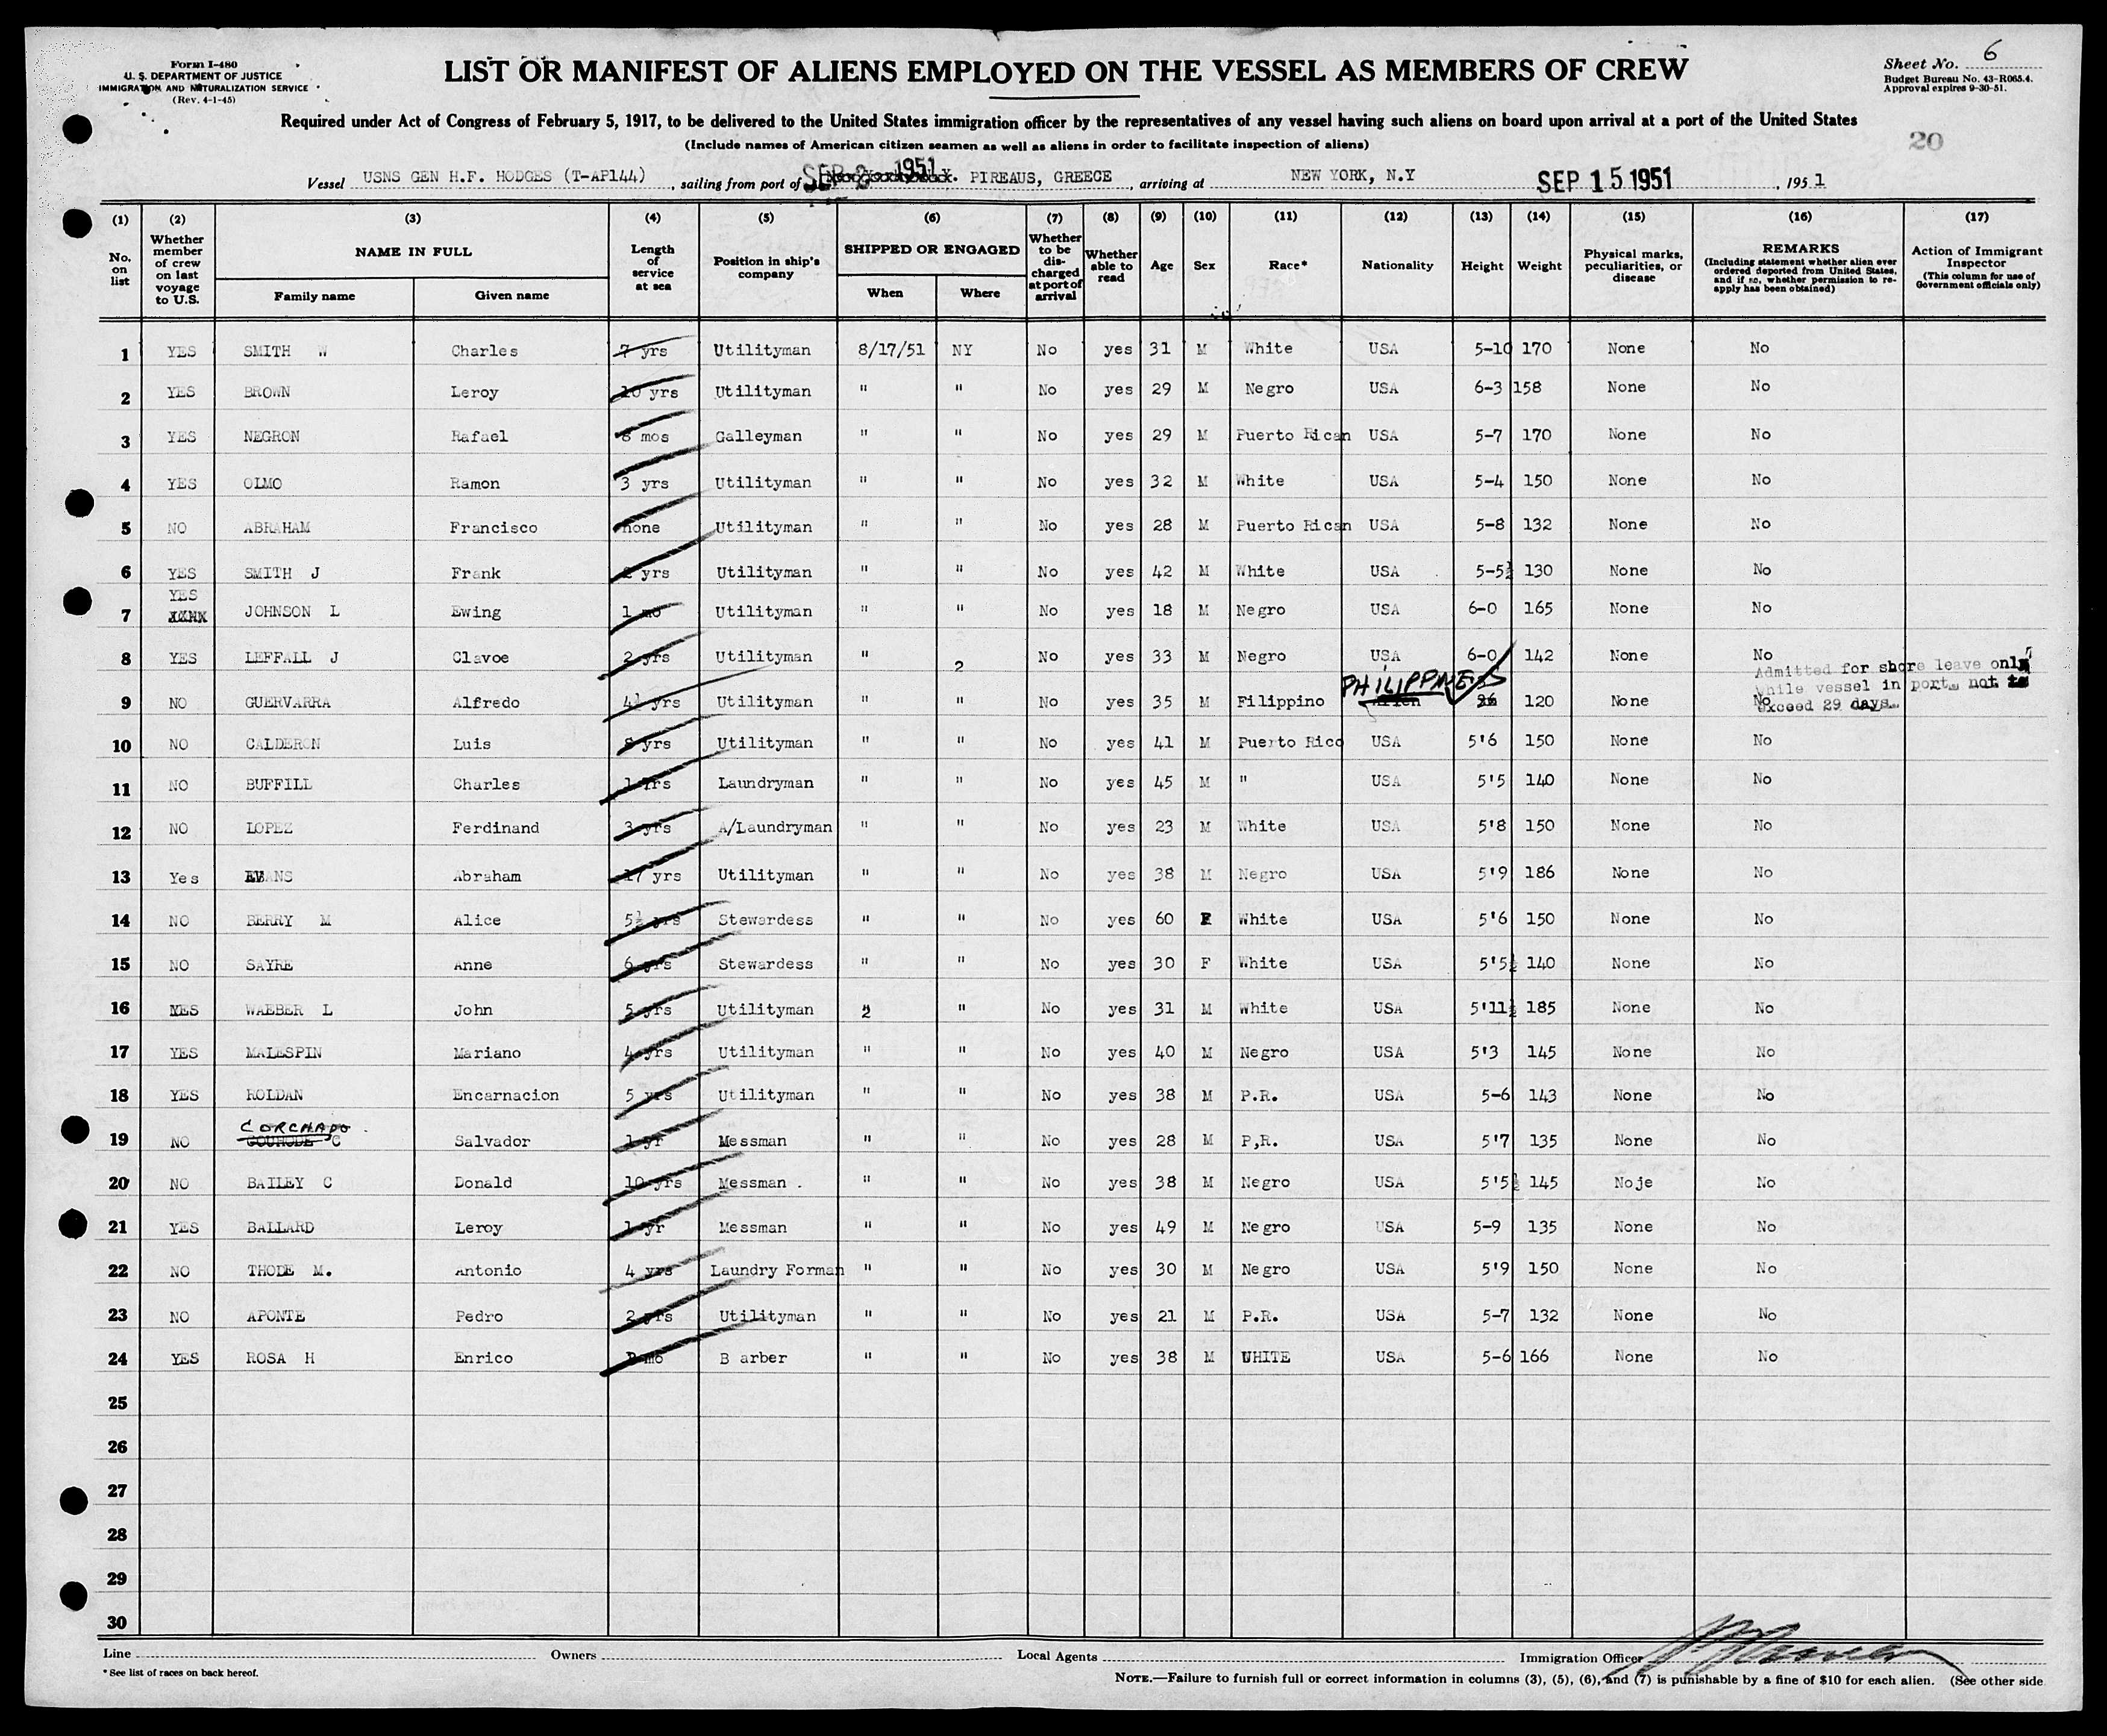 Form I-480
U. S. DEPARTMENT OF JUSTICE
IMMIGRATION AND NATURALIZATION SERVICE
(Rev. 4-1-45)
LIST OR MANIFEST OF ALIENS EMPLOYED ON THE VESSEL AS MEMBERS OF CREW
Sheet No. 6
Budget Bureau No. 43-R065.4.
Approval expires 9-30-51.
Required under Act of Congress of February 5, 1917, to be delivered to the United States immigration officer by the representatives of any vessel having such aliens on board upon arrival at a port of the United States
(Include names of American citizen seamen as well as aliens in order to facilitate inspection of aliens)
20
Vessel USNS GEN H.F. HODGES (T-AP144), sailing from port of SEP 1951 PIREAUS, GREECE, arriving at NEW YORK, N.Y SEP 15 1951, 1951
(1) (2) (3) (4) (5) (6) (7) (8) (9) (10) (11) (12) (13) (14) (15) (16) (17)
No. on list
Whether member of crew on last voyage to U.S.
NAME IN FULL
Family name
Given name
Length of service at sea
Position in ship's company
SHIPPED OR ENGAGED
When
Where
Whether to be discharged at port of arrival
Whether able to read
Age
Sex
Race*
Nationality
Height
Weight
Physical marks, peculiarities, or disease
REMARKS
(Including statement whether alien ever ordered deported from United States, and if so, whether permission to reapply has been obtained)
Action of Immigrant Inspector
(This column for use of Government officials only)
1 YES SMITH W Charles 7 yrs Utilityman 8/17/51 NY No yes 31 M White USA 5-10 170 None No
2 YES BROWN Leroy 10 yrs Utilityman " " No yes 29 M Negro USA 6-3 158 None No
3 YES NEGRON Rafael 8 mos Galleyman " " No yes 29 M Puerto Rican USA 5-7 170 None No
4 YES OLMO Ramon 3 yrs Utilityman " " No yes 32 M White USA 5-4 150 None No
5 NO ABRAHAM Francisco none Utilityman " " No yes 28 M Puerto Rican USA 5-8 132 None No
6 YES SMITH J Frank 2 yrs Utilityman " " No yes 42 M White USA 5-5½ 130 None No
7 YES JOHNSON L Ewing 1 mo Utilityman " " No yes 18 M Negro USA 6-0 165 None No
8 YES LEFFALL J Clavoe 2 yrs Utilityman " 2 No yes 33 M Negro USA 6-0 142 None No
Admitted for shore leave only
while vessel in port, not to
exceed 29 days.
PHILIPPINES
9 NO GUERVARRA Alfredo 4½ yrs Utilityman " " No yes 35 M Filippino Alien 120 None No
10 NO CALDERON Luis 8 yrs Utilityman " " No yes 41 M Puerto Rico USA 5'6 150 None No
11 NO BUFFILL Charles 1 yrs Laundryman " " No yes 45 M " USA 5'5 140 None No
12 NO LOPEZ Ferdinand 3 yrs A/Laundryman " " No yes 23 M White USA 5'8 150 None No
13 Yes EVANS Abraham 17 yrs Utilityman " " No yes 38 M Negro USA 5'9 186 None No
14 NO BERRY M Alice 5½ yrs Stewardess " " No yes 60 F White USA 5'6 150 None No
15 NO SAYRE Anne 6 yrs Stewardess " " No yes 30 F White USA 5'5½ 140 None No
16 YES WAEBER L John 5 yrs Utilityman 2 " No yes 31 M White USA 5'11½ 185 None No
17 YES MALESPIN Mariano 4 yrs Utilityman " " No yes 40 M Negro USA 5'3 145 None No
18 YES ROLDAN Encarnacion 5 yrs Utilityman " " No yes 38 M P.R. USA 5-6 143 None No
CORCHADO
19 NO C Salvador 1 yr Messman " " No yes 28 M P,R. USA 5'7 135 None No
20 NO BAILEY C Donald 10 yrs Messman . " " No yes 38 M Negro USA 5'5½ 145 Noje No
21 YES BALLARD Leroy 1 yr Messman " " No yes 49 M Negro USA 5-9 135 None No
22 NO THODE M. Antonio 4 yrs Laundry Forman " " No yes 30 M Negro USA 5'9 150 None No
23 NO APONTE Pedro 2 yrs Utilityman " " No yes 21 M P.R. USA 5-7 132 None No
24 YES ROSA H Enrico mo B arber " " No yes 38 M WHITE USA 5-6 166 None No
25
26
27
28
29
30
Line Owners Local Agents Immigration Officer
* See list of races on back hereof.
NOTE.—Failure to furnish full or correct information in columns (3), (5), (6), and (7) is punishable by a fine of $10 for each alien. (See other side